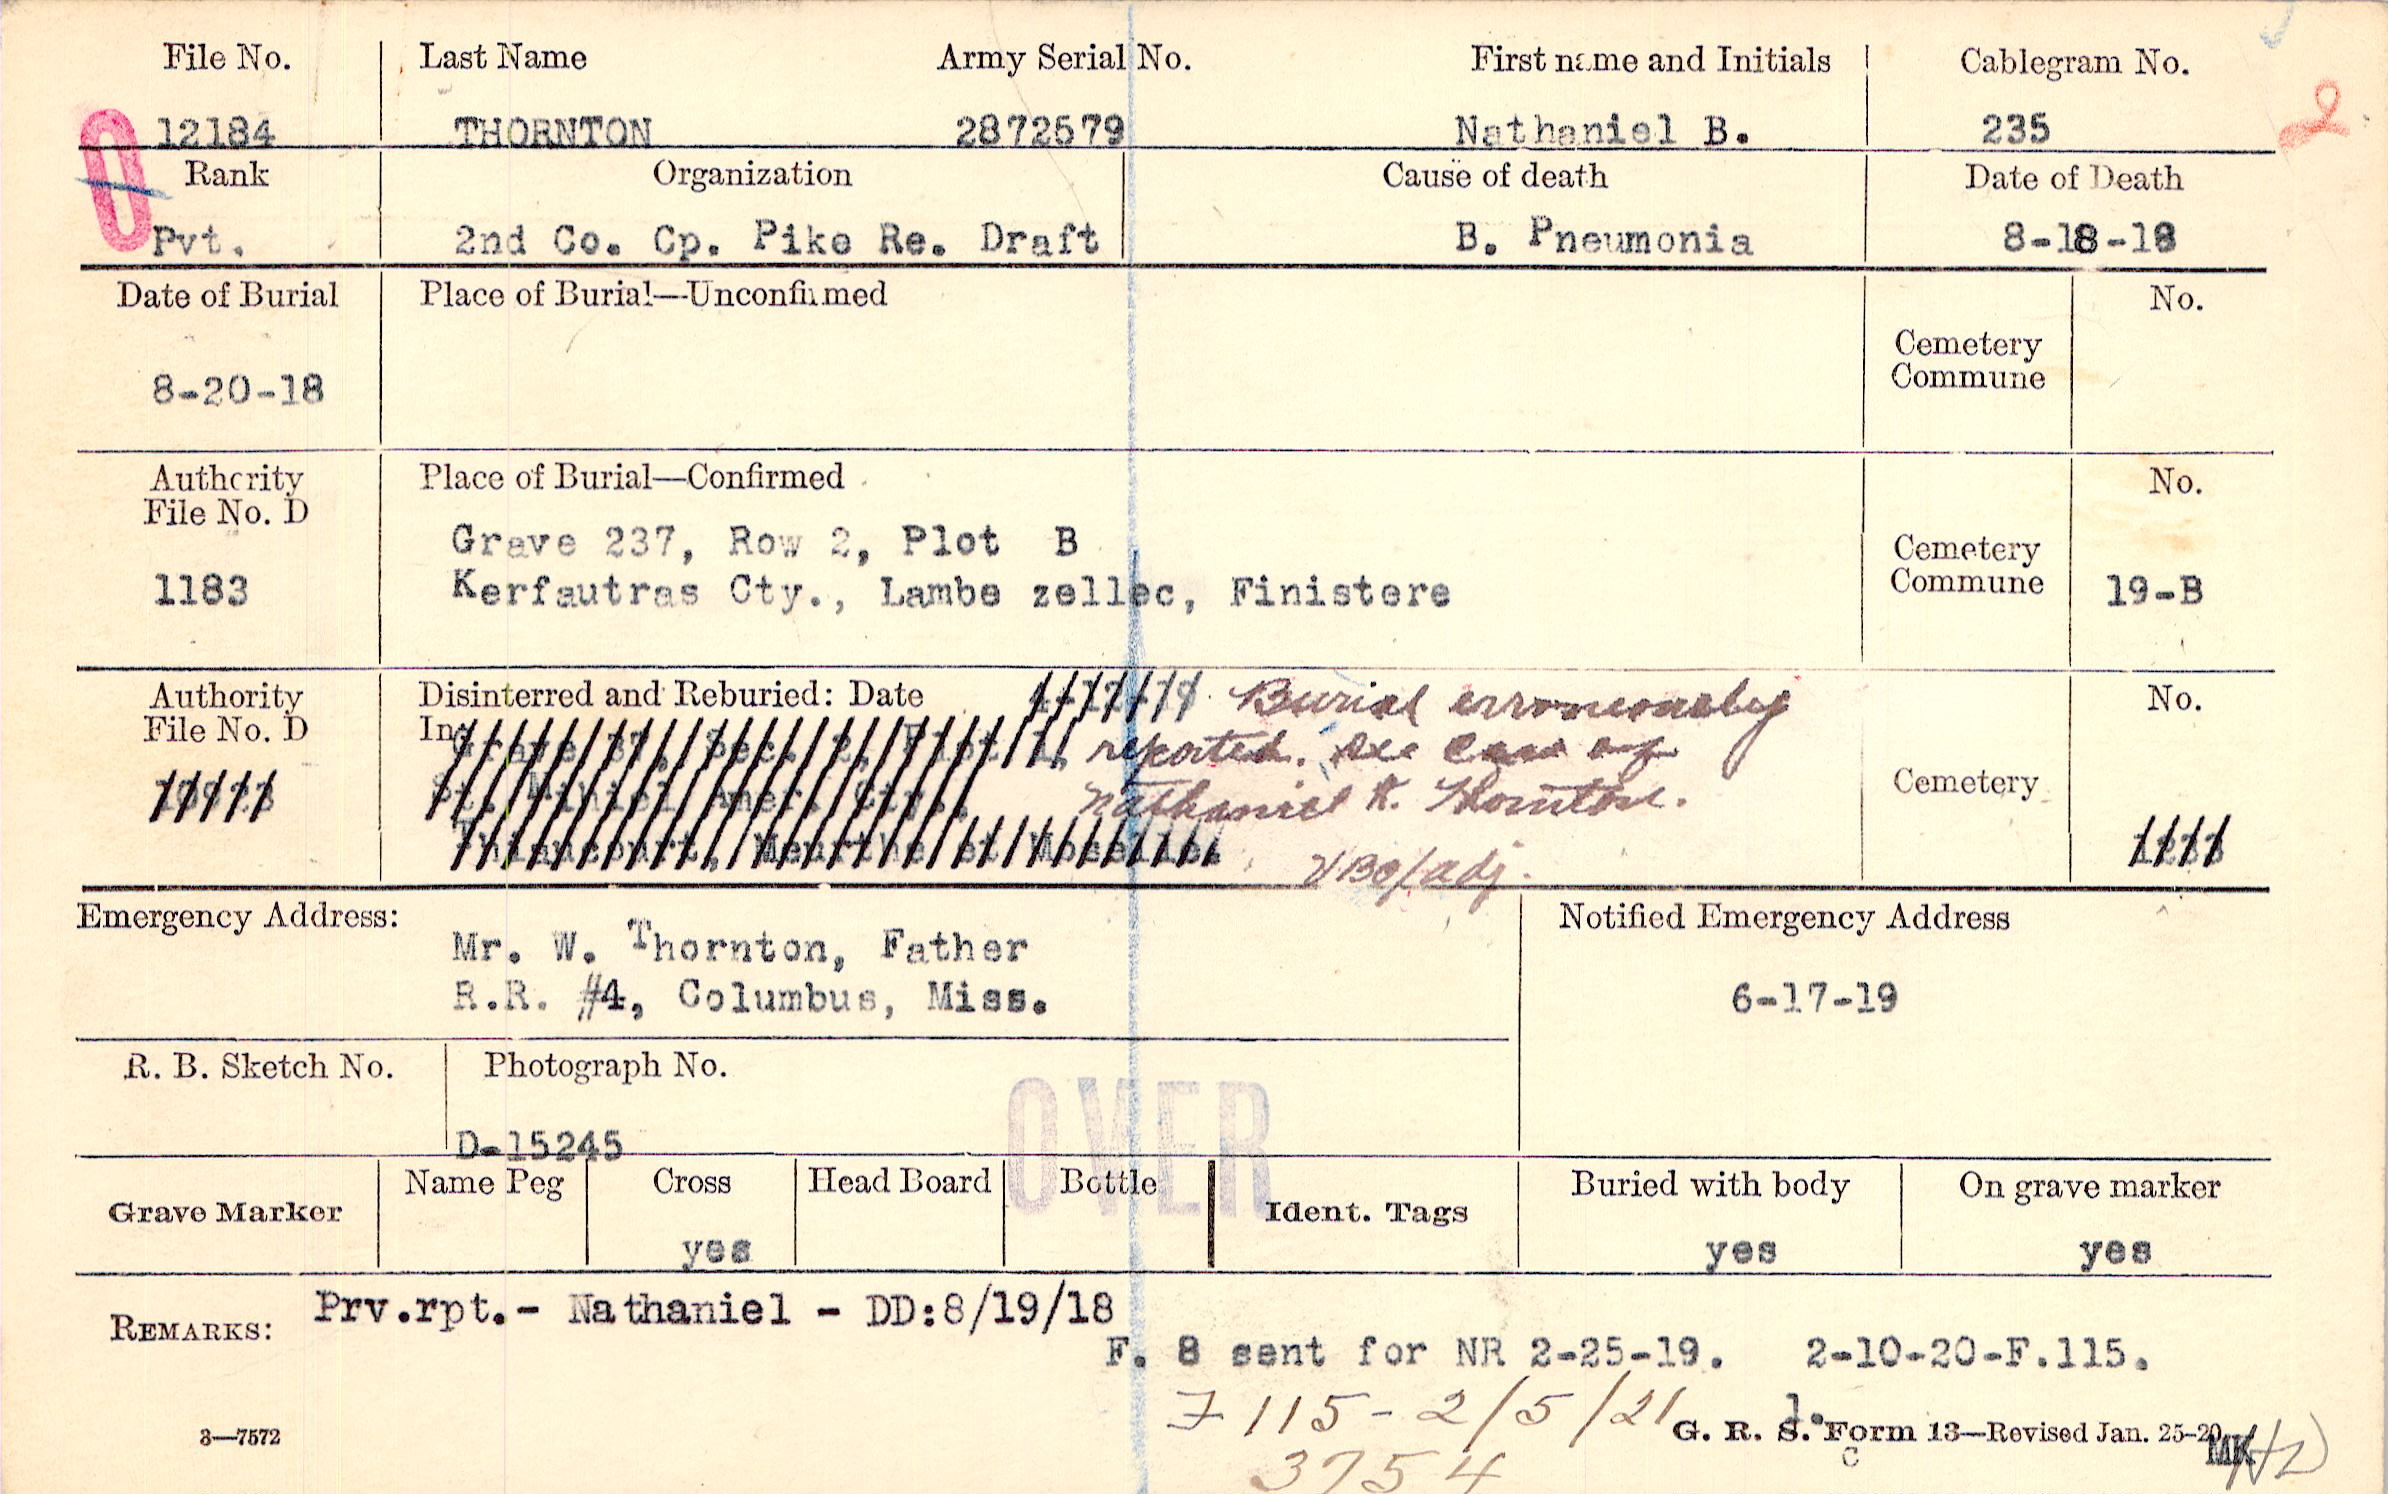 File No. Last Name Army Serial No. First name and Initials Cablegram No.
12184 THORNTON 2872579 Nathaniel B. 235
2
Rank Organization Cause of death Date of Death
Pvt. 2nd Co. Cp. Pike Re. Draft B. Pneumonia 8-18-18
Date of Burial Place of Burial—Unconfirmed No.
Cemetery
Commune
8-20-18
Authority Place of Burial—Confirmed No.
File No. D
Grave 237, Row 2, Plot B
Cemetery
Commune
1183 Kerfautras Cty., Lambe zellec, Finistere 19-B
Authority Disinterred and Reburied: Date Burial erroneously No.
File No. D In: Grave 37, Sec. Plot reported. See Case of
St. Mihiel Amer. Cty., Nathaniel R. Thornton. Cemetery
Thiaucourt, Meurthe et Moselle.
Emergency Address: Notified Emergency Address
Mr. W. Thornton, Father
R.R. #4, Columbus, Miss. 6-17-19
R. B. Sketch No. Photograph No.
OVER
D-15245
Grave Marker Name Peg Cross Head Board Bottle Ident. Tags Buried with body On grave marker
yes yes yes
REMARKS: Prv.rpt.- Nathaniel - DD:8/19/18
F. 8 sent for NR 2-25-19. 2-10-20-F.115.
F 115 - 2/5/21
3—7572 G. R. S. Form 13—Revised Jan. 25-20
3754 MK